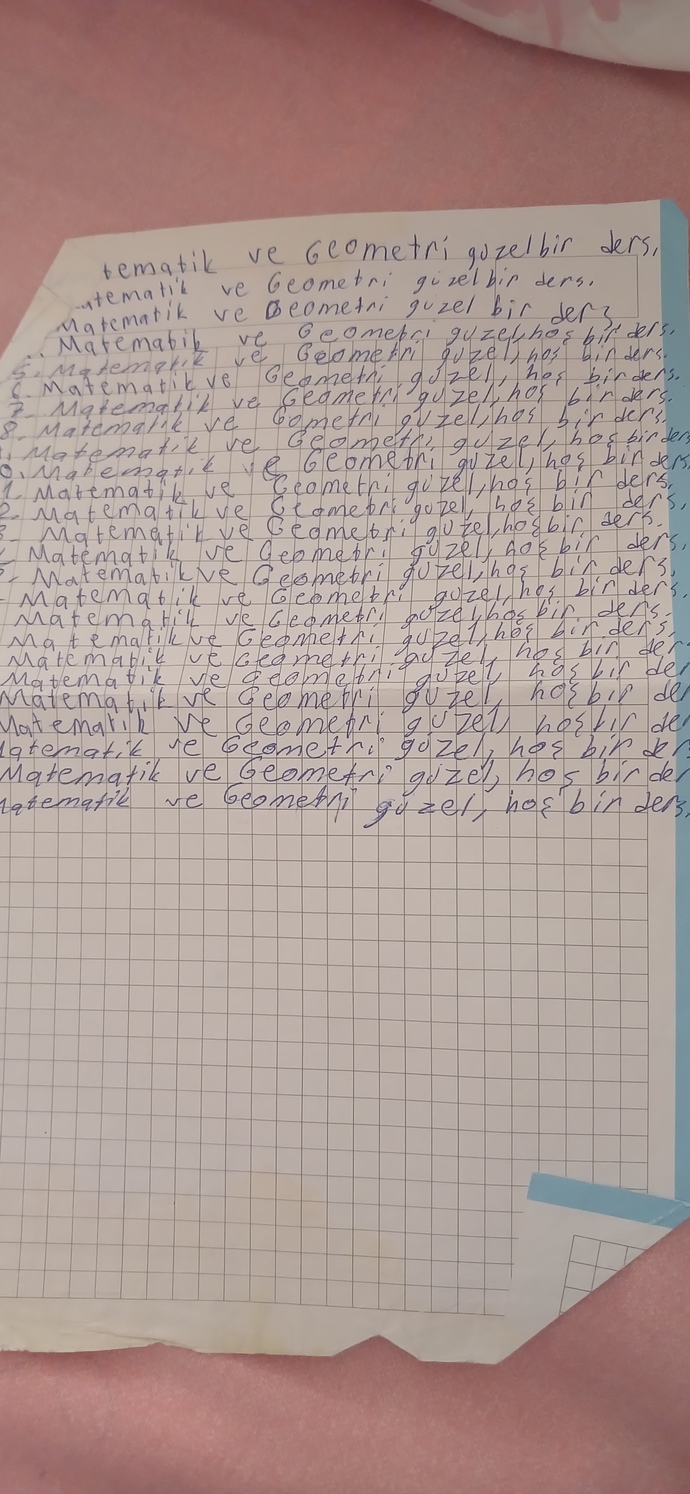 tematik ve Geometri güzel bir ders,
atematik ve Geometri güzel bir ders.
Matematik ve Geometri güzel bir ders
Matematik ve Geometri güzel, hoş bir ders.
5. Matematik ve Geometri güzel, hoş bir ders.
6. Matematik ve Geometri güzel, hoş bir ders.
7. Matematik ve Geometri güzel, hoş bir ders.
8. Matematik ve Gometri güzel, hoş bir ders.
. Matematik ve Geometri güzel, hoş bir ders
0. Matematik ve Geometri güzel, hoş bir ders.
1. Matematik ve Geometri güzel, hoş bir ders.
2. Matematik ve Geometri güzel, hoş bir ders.
3- Matematik ve Geometri güzel, hoş bir ders.
Matematik ve Geometri güzel, hoş bir ders,
Matematik ve Geometri güzel, hoş bir ders.
- Matematik ve Geometri güzel, hoş bir ders.
Matematik ve Geometri güzel, hoş bir ders.
Matematik ve Geometri güzel, hoş bir ders,
Matematik ve Geometri güzel, hoş bir der
Matematik ve Geometri güzel, hoş bir der
Matematik ve Geometri güzel, hoş bir der
Matematik ve Geometri güzel, hoş bir der
Matematik ve Geometri güzel, hoş bir der
Matematik ve Geometri güzel, hoş bir der
Matematik ve Geometri güzel, hoş bir ders,